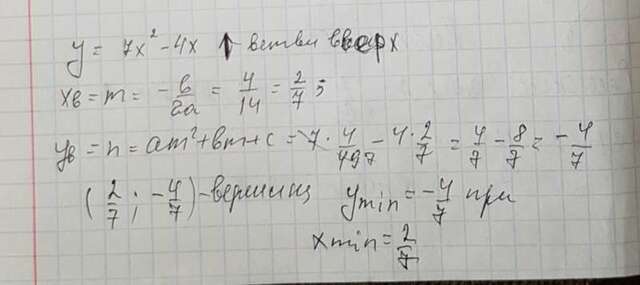 y = 7x² - 4x ↑ ветви вверх
xв = m = -b/2a = 4/14 = 2/7;
yв = n = am² + bm + c = 7 · 4/49 7 - 4 · 2/7 = 4/7 - 8/7 = -4/7
(2/7; -4/7) - вершина ymin = -4/7 при
xmin = 2/7